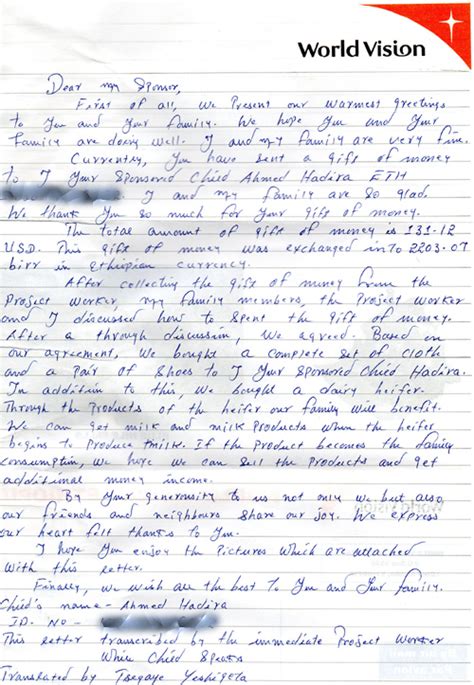 World Vision
Dear my Sponsor,
First of all, we Present our warmest greetings
to you and your family. We hope you and your
family are doing well. I and my family are very fine.
Currently, you have sent a gift of money
to I your Sponsored Child Ahmed Hadira ETH
I and my family are so glad.
We thank you so much for your gift of money.
The total amount of gift of money is 131.12
U.S.D. This gift of money was exchanged into 2203.07
birr in Ethiopian currency.
After collecting the gift of money from the
Project worker, my family members, the Project worker
and I discussed how to spent the gift of money.
After a through discussion, we agreed. Based on
our agreement, we bought a complete set of cloth
and a pair of shoes to I your sponsored child Hadira.
In addition to this, we bought a dairy heifer.
Through the products of the heifer our family will benefit.
We can get milk and milk products when the heifer
begins to produce milk. If the product becomes the family
consumption, we hope we can sell the products and get
additional money income.
By your generousity to us not only we but also
our friends and neighbours share our joy. We express
our heart felt thanks to you.
I hope you enjoy the pictures which are attached
with this letter.
Finally, we wish all the best to you and your family.
Child's name - Ahmed Hadira
ID. No -
This letter transcribed by the immediate Project worker
While Child Speaks
Translated by Tsegaye Yeshigeta